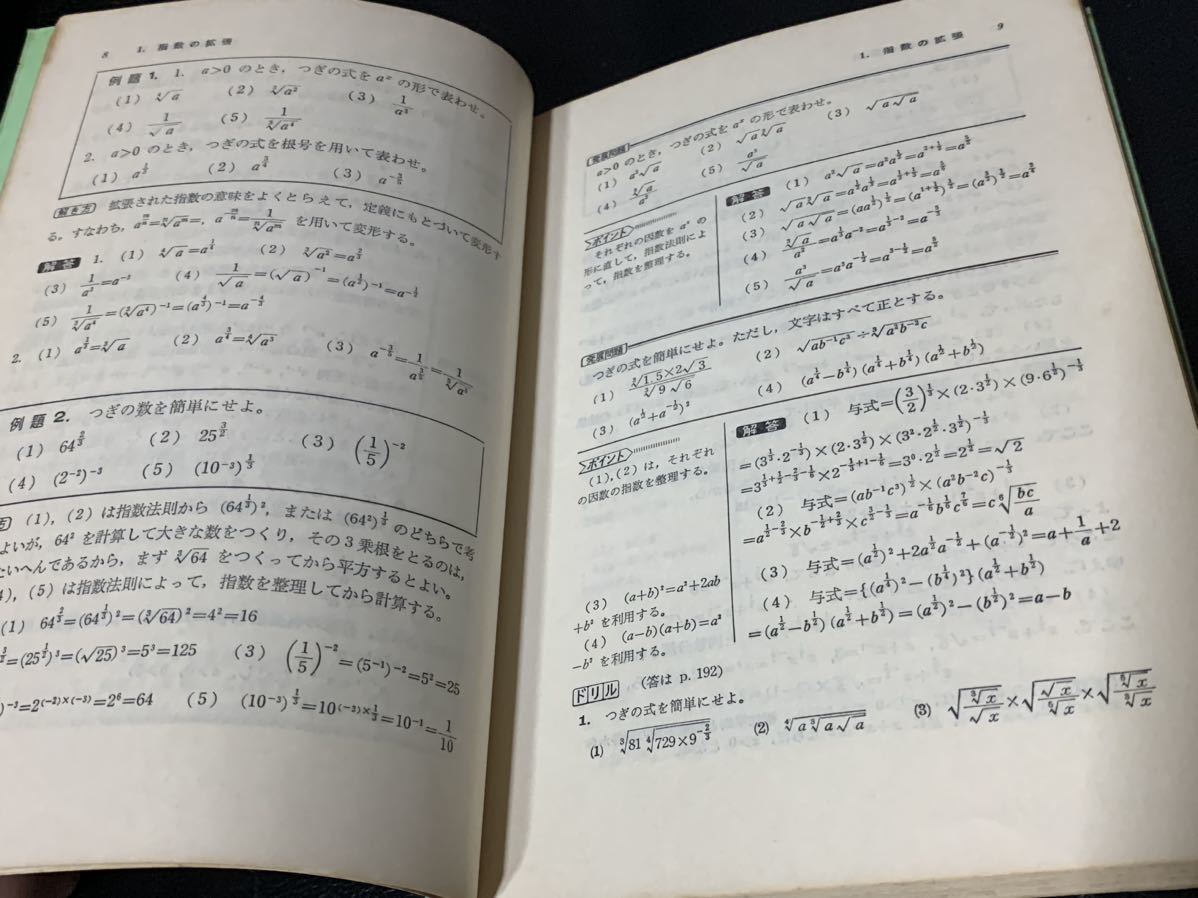 8　1. 指数の拡張
例題1. 1. a>0 のとき，つぎの式を aˣ の形で表わせ。
(1) (2) ∛a² (3) 1/a³
(4) 1/√a (5) 1/∛a⁴
2. a>0 のとき，つぎの式を根号を用いて表わせ。
(1) a^{1/3} (2) a^{3/4} (3) a^{-3/5}
解き方 拡張された指数の意味をよくとらえて，定義にもとづいて変形す
る。すなわち，a^{m/n}=ⁿ√a^m, a^{-m/n}=1/ⁿ√a^m を用いて変形する。
解答 1. (1) (2) ∛a²=a^{2/3}
(3) 1/a³=a⁻³ (4) 1/√a=(√a)⁻¹=(a^{1/2})⁻¹=a^{-1/2}
(5) 1/∛a⁴=(∛a⁴)⁻¹=(a^{4/3})⁻¹=a^{-4/3}
2. (1) a^{1/3}=∛a (2) a^{3/4}=∜a³ (3) a^{-3/5}=1/a^{3/5}=1/⁵√a³
例題2. つぎの数を簡単にせよ。
(1) 64^{2/3} (2) 25^{3/2} (3) (1/5)⁻²
(4) (2⁻²)⁻³ (5) (10⁻³)^{1/3}
方 (1), (2) は指数法則から (64^{1/3})²，または (64²)^{1/3} のどちらで考
よいが，64² を計算して大きな数をつくり，その3乗根をとるのは，
たいへんであるから，まず ∛64 をつくってから平方するとよい。
4), (5) は指数法則によって，指数を整理してから計算する。
(1) 64^{2/3}=(64^{1/3})²=(∛64)²=4²=16
^{3/2}=(25^{1/2})³=(√25)³=5³=125 (3) (1/5)⁻²=(5⁻¹)⁻²=5²=25
)⁻³=2^{(-2)×(-3)}=2⁶=64 (5) (10⁻³)^{1/3}=10^{(-3)×1/3}=10⁻¹=1/10
1. 指数の拡張　9
発展問題
a>0 のとき，つぎの式を aˣ の形で表わせ。
(1) a²√a (2) √a∛a (3) √a√a
(4) ∛a/a² (5) a³/√a
ポイント
それぞれの因数を aˣ の
形に直して，指数法則によ
って，指数を整理する。
解答 (1) a²√a=a²a^{1/2}=a^{2+1/2}=a^{5/2}
(2) √a∛a=a^{1/2}a^{1/3}=a^{1/2+1/3}=a^{5/6}
(3) √a√a=(aa^{1/2})^{1/2}=(a^{1+1/2})^{1/2}=(a^{3/2})^{1/2}=a^{3/4}
(4) ∛a/a²=a^{1/3}a⁻²=a^{1/3-2}=a^{-5/3}
(5) a³/√a=a³a^{-1/2}=a^{3-1/2}=a^{5/2}
発展問題
つぎの式を簡単にせよ。ただし，文字はすべて正とする。
(1) ∛1.5×2√3/∛9 √6 (2) √ab⁻¹c³÷∛a²b⁻²c
(3) (a^{1/2}+a^{-1/2})² (4) (a^{1/4}-b^{1/4})(a^{1/4}+b^{1/4})(a^{1/2}+b^{1/2})
ポイント
(1), (2) は，それぞれ
の因数の指数を整理する。
(3) (a+b)²=a²+2ab
+b² を利用する。
(4) (a-b)(a+b)=a²
-b² を利用する。
解答 (1) 与式=(3/2)^{1/3}×(2·3^{1/2})×(9·6^{1/2})^{-1/3}
=(3^{1/3}·2^{-1/3})×(2·3^{1/2})×(3²·2^{1/2}·3^{1/2})^{-1/3}
=3^{1/3+1/2-2/3-1/6}×2^{-1/3+1-1/6}=3⁰·2^{1/2}=2^{1/2}=√2
(2) 与式=(ab⁻¹c³)^{1/2}×(a²b⁻²c)^{-1/3}
=a^{1/2-2/3}×b^{-1/2+2/3}×c^{3/2-1/3}=a^{-1/6}b^{1/6}c^{7/6}=c⁶√bc/a
(3) 与式=(a^{1/2})²+2a^{1/2}a^{-1/2}+(a^{-1/2})²=a+1/a+2
(4) 与式={(a^{1/4})²-(b^{1/4})²}(a^{1/2}+b^{1/2})
=(a^{1/2}-b^{1/2})(a^{1/2}+b^{1/2})=(a^{1/2})²-(b^{1/2})²=a-b
ドリル (答は p. 192)
1. つぎの式を簡単にせよ。
(1) ∛81∜729×9^{-2/3} (2) ∜a∛a√a (3)